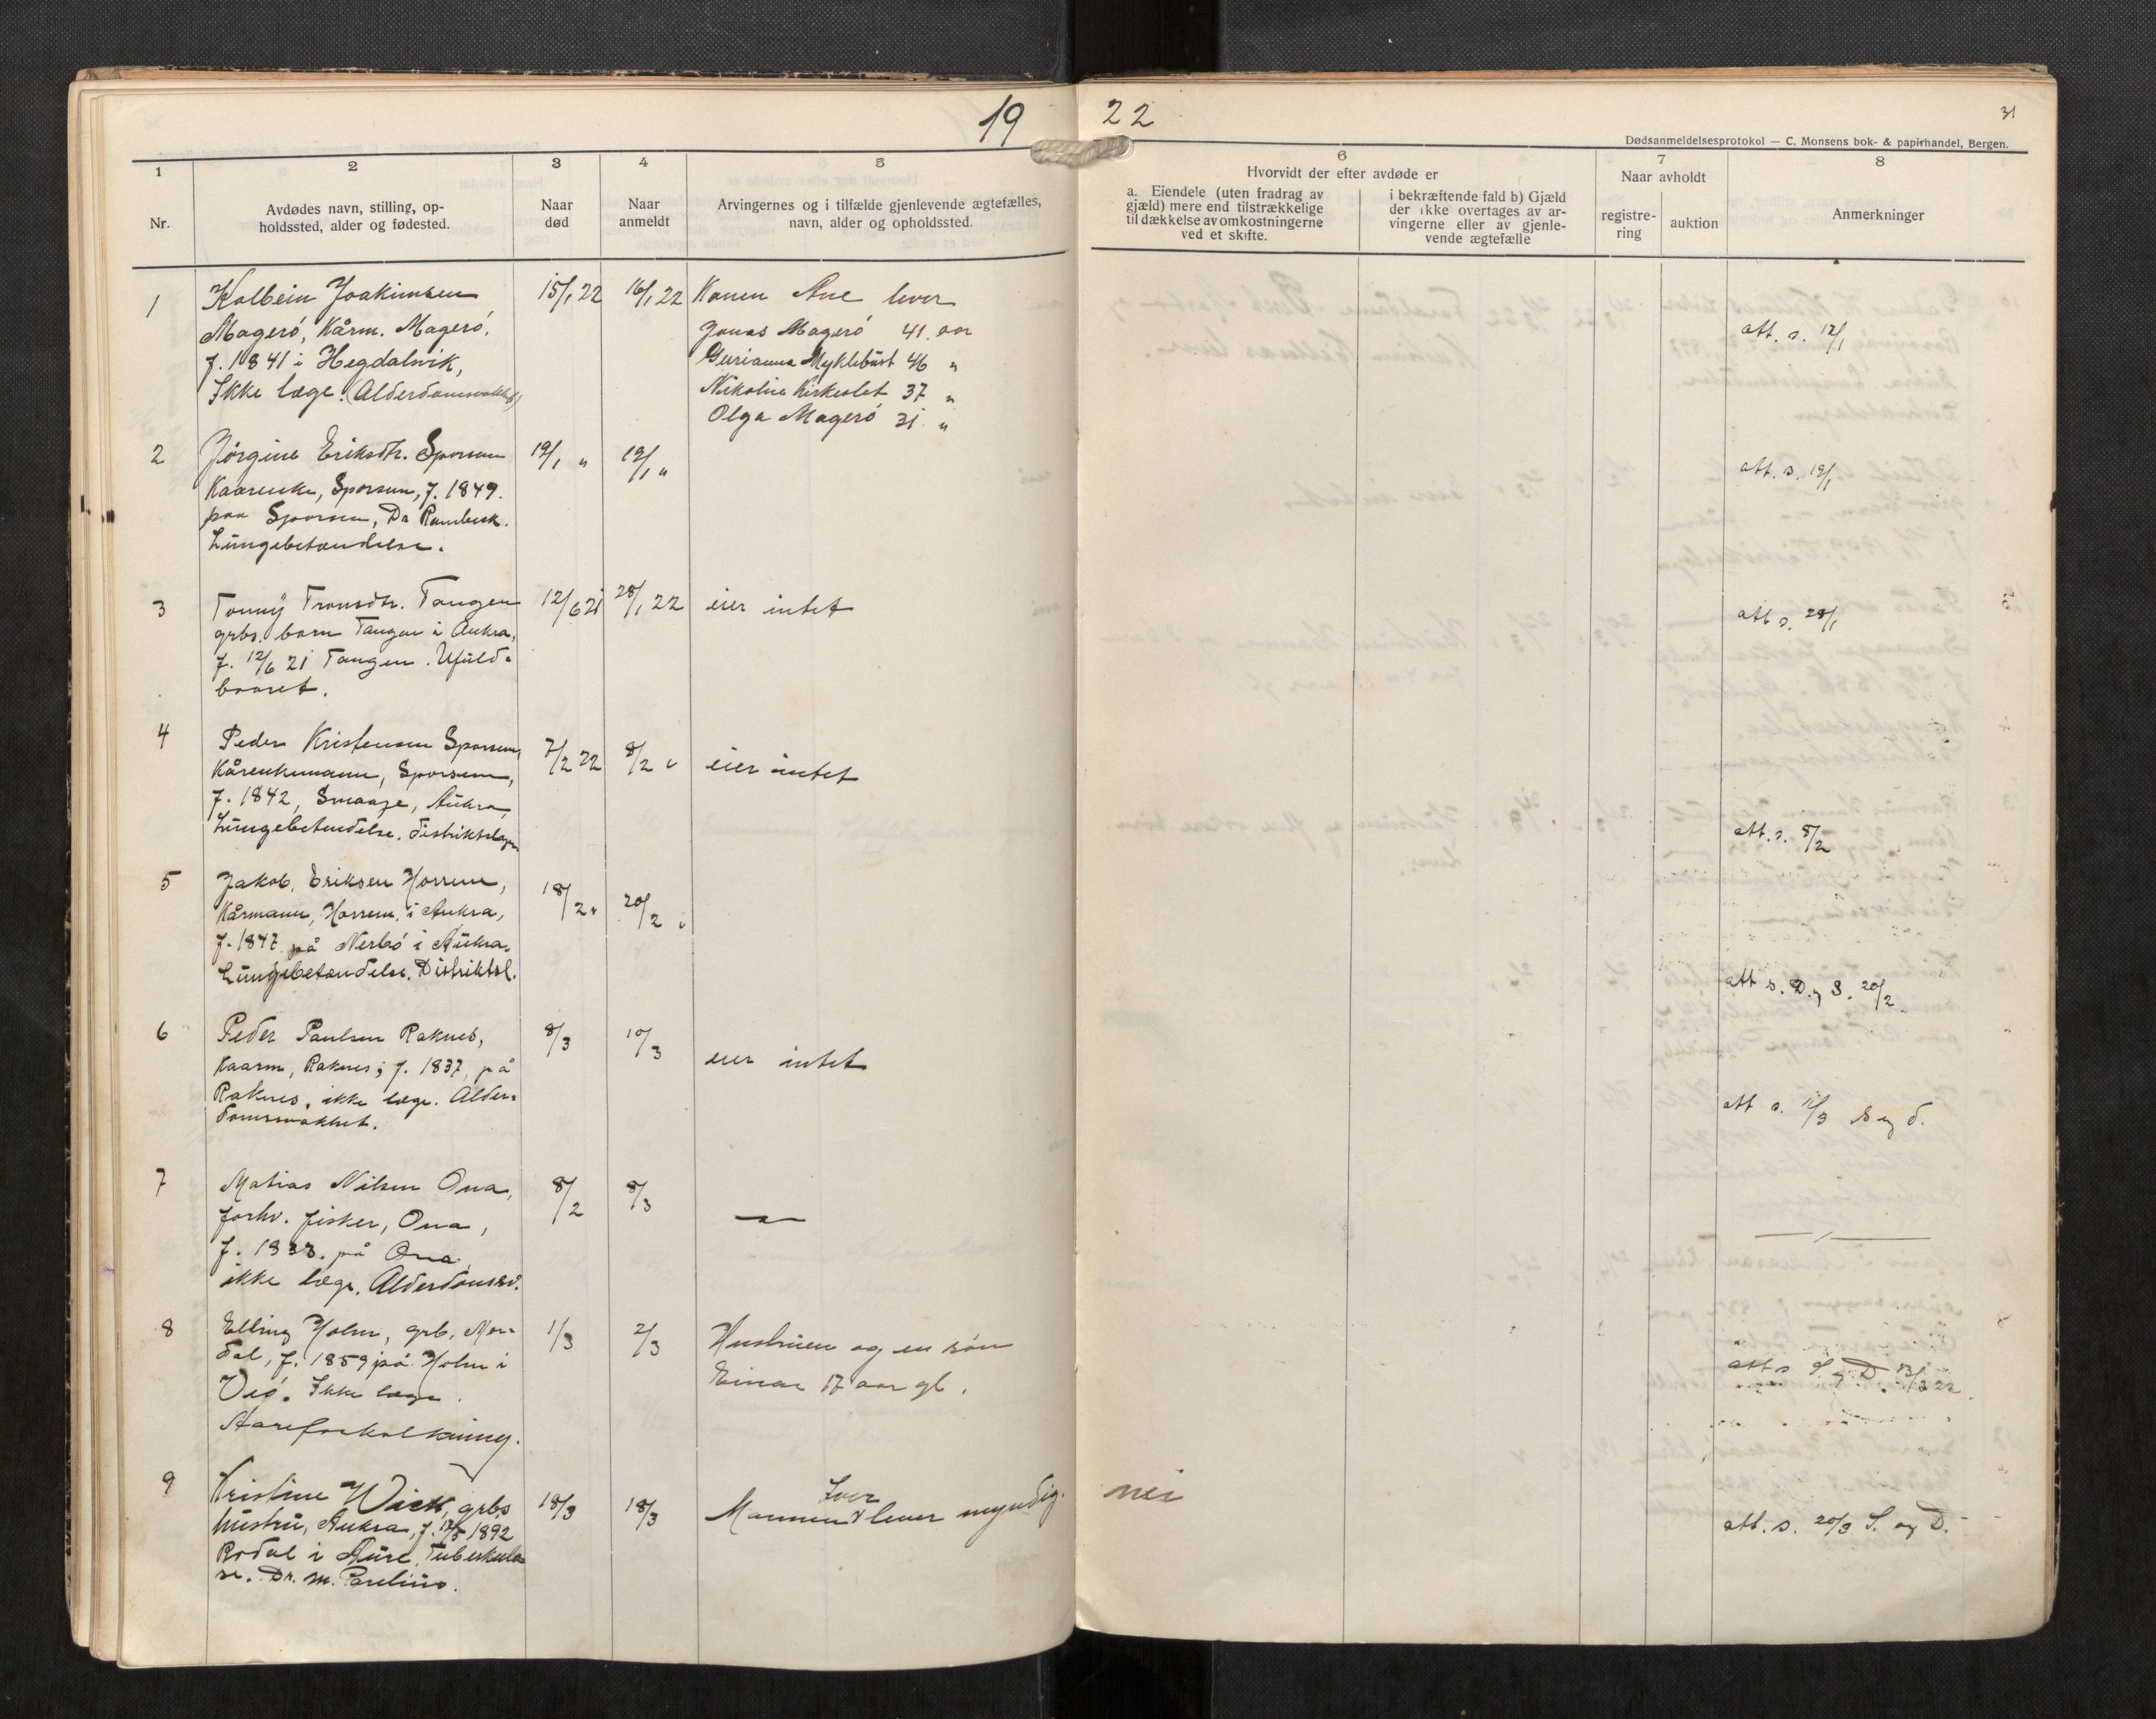 19 22
31
Dødsanmeldelsesprotokol — C. Monsens bok- & papirhandel, Bergen.
1
Nr.
2
Avdødes navn, stilling, op-
holdssted, alder og fødested.
3
Naar
død
4
Naar
anmeldt
5
Arvingernes og i tilfælde gjenlevende ægtefælles,
navn, alder og opholdssted.
6
Hvorvidt der efter avdøde er
a. Eiendele (uten fradrag av
gjæld) mere end tilstrækkelige
til dækkelse av omkostningerne
ved et skifte.
i bekræftende fald b) Gjæld
der ikke overtages av ar-
vingerne eller av gjenle-
vende ægtefælle
7
Naar avholdt
registre-
ring
auktion
8
Anmerkninger
1
Kolbein Joakimsen
Magerö, Kårm. Magerö.
f. 1841 i Hegdalsvik,
Ikke læge. (Alderdomsvakhet)
15/1 22
16/1 22
Konen Ane lever
Jonas Magerö 41. aar
Gurianna Myklebust 46 "
Nikoline Kirkeslet 37 "
Olga Magerö 31 "
att. s. 17/1
2
Jörgine Eriksdtr. Sporsem
Kaarenke, Sporsem, f. 1849.
paa Sporsem, Dr
Lungebetændelse.
19/1 "
19/1 "
att. s. 19/1
3
Tonny Tronsdtr. Tangen
grbs. barn Tangen i Aukra,
f. 12/6 21 Tangen. Ufuld-
baaret.
12/6 21
28/1 22
eier intet
att s. 28/1
4
Peder Kristensen Sporsem,
Kårenkemann, Sporsem,
f. 1842, Smaage, Aukra
Lungebetendelse. Distriktslægen
7/2 22
8/2 "
eier intet
att. s. 8/2
5
Jakob Eriksen Horrem,
Kårmann, Horrem i Aukra,
f. 1847 på Nerbö i Aukra.
Lungebetendelse. Distriktsl.
18/2 "
20/2 "
att s. D. og S. 20/2
6
Peder Paulsen Raknes,
Kaarm, Raknes; f. 1837, på
Raknes, ikke læge. Alder-
domsvakhet.
8/3
10/3
eier intet
att s. 11/3 S og D.
7
Matias Nilsen Ona,
forhv. fisker, Ona,
f. 1838. på Ona
ikke læge. Alderdomssv.
8/2
8/3
8
Elling Holm, grb, Mor-
dal, f. 1859 på Holm i
Veö. Ikke læge.
Aareforkalkning.
1/3
2/3
Hustruen og en sön
Einar 17 aar gl.
att s S og D. 13/3 22
9
Kristine Wick, grbs
hustru, Aukra, f. 17/5 1892
Rodal i Aure. Tuberkulo
se. Dr. M. Paulius.
18/3
18/3
Mannen Iver lever myndig.
nei
att. s. 20/3 S. og D.